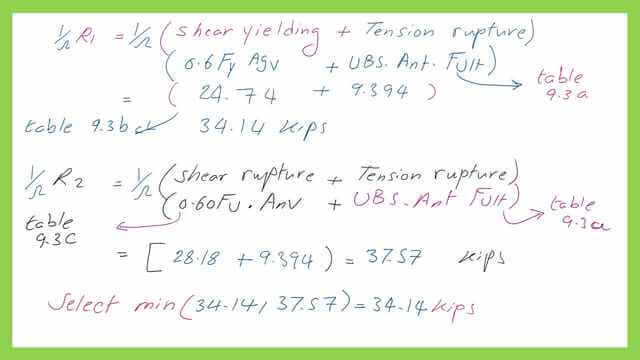 1/Ω R1 = 1/Ω (Shear yielding + Tension rupture)
(0.6Fy Agv + UBS. Ant. Fult)
table 9.3a
= (24.74 + 9.394)
table 9.3b 34.14 kips
1/Ω R2 = 1/Ω (shear rupture + Tension rupture)
(0.60Fu. Anv + UBS. Ant Fult)
table 9.3C
table 9.3a
= [28.18 + 9.394) = 37.57 kips
Select min(34.14, 37.57) = 34.14 kips